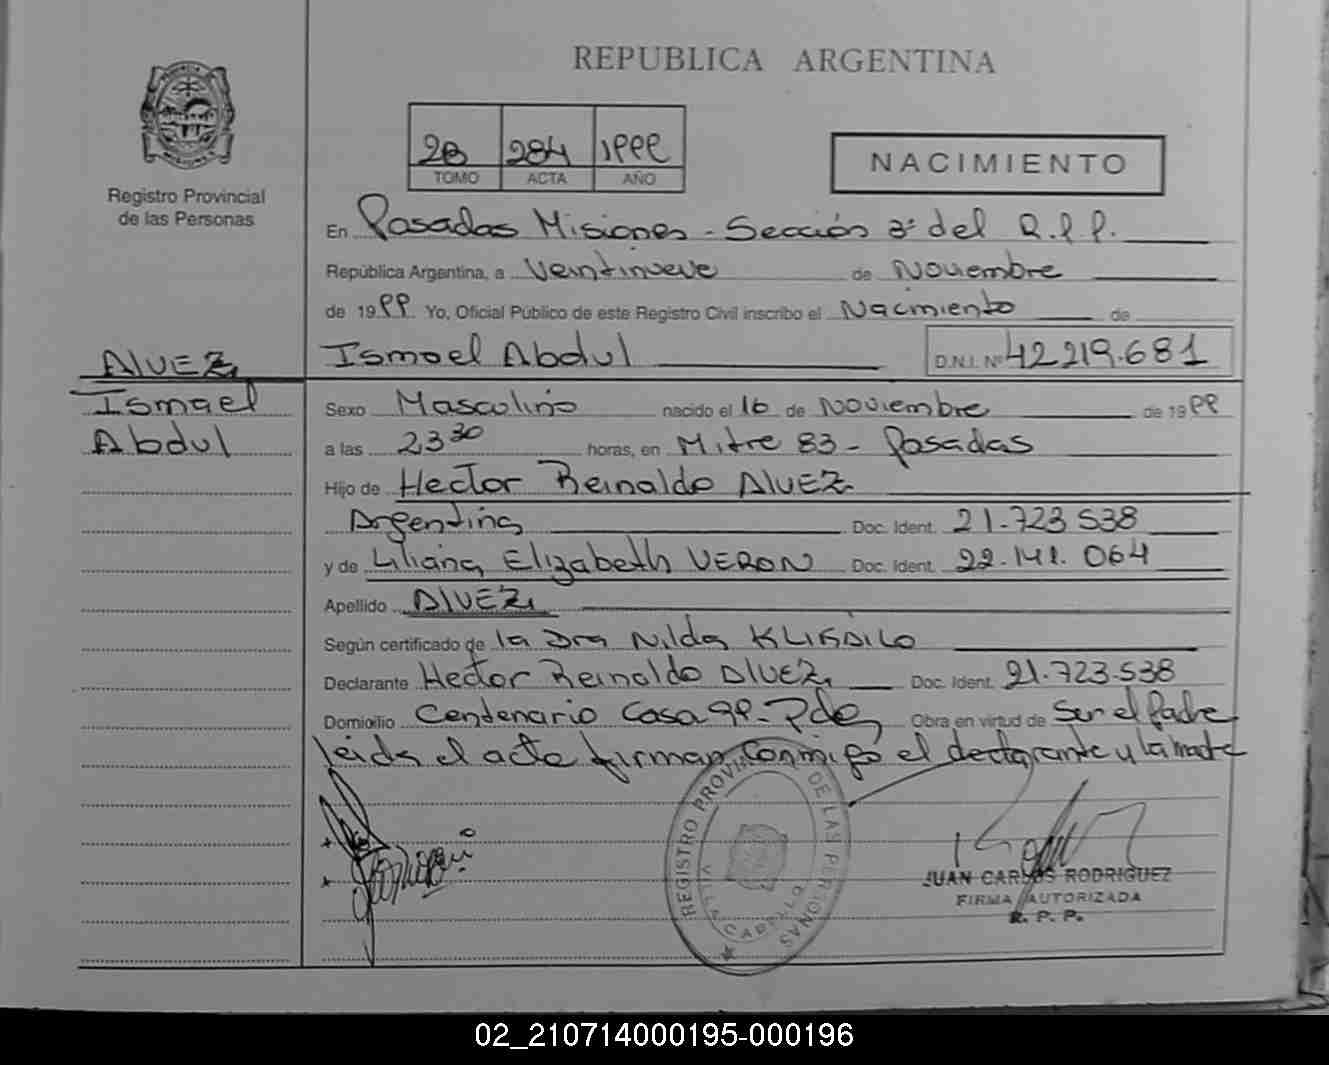 REPUBLICA ARGENTINA
28 284 1999
TOMO ACTA AÑO
NACIMIENTO
Registro Provincial
de las Personas
En Posadas Misiones - Sección 3ª del R.P.P.
República Argentina, a Veintinueve de Noviembre
de 1999 Yo, Oficial Público de este Registro Civil inscribo el Nacimiento de
Ismael Abdul D.N.I. Nº 42.219.681
ALVEZ
Ismael
Abdul
Sexo Masculino nacido el 16 de Noviembre de 1999
a las 23 30 horas, en Mitre 83 - Posadas
Hijo de Hector Reinaldo ALVEZ
Argentina Doc. Ident. 21.723.538
y de Liliana Elizabeth VERON Doc. Ident. 22.141.064
Apellido ALVEZ
Según certificado de la Dra Nilda
Declarante Hector Reinaldo ALVEZ Doc. Ident. 21.723.538
Domicilio Centenario Casa 99 - Pdas Obra en virtud de Ser el Padre
leida el acta firman conmigo el declarante y la madre
REGISTRO PROVINCIAL DE LAS PERSONAS
VILLA CABELLO
JUAN CARLOS RODRIGUEZ
FIRMA AUTORIZADA
R. P. P.
02_210714000195-000196